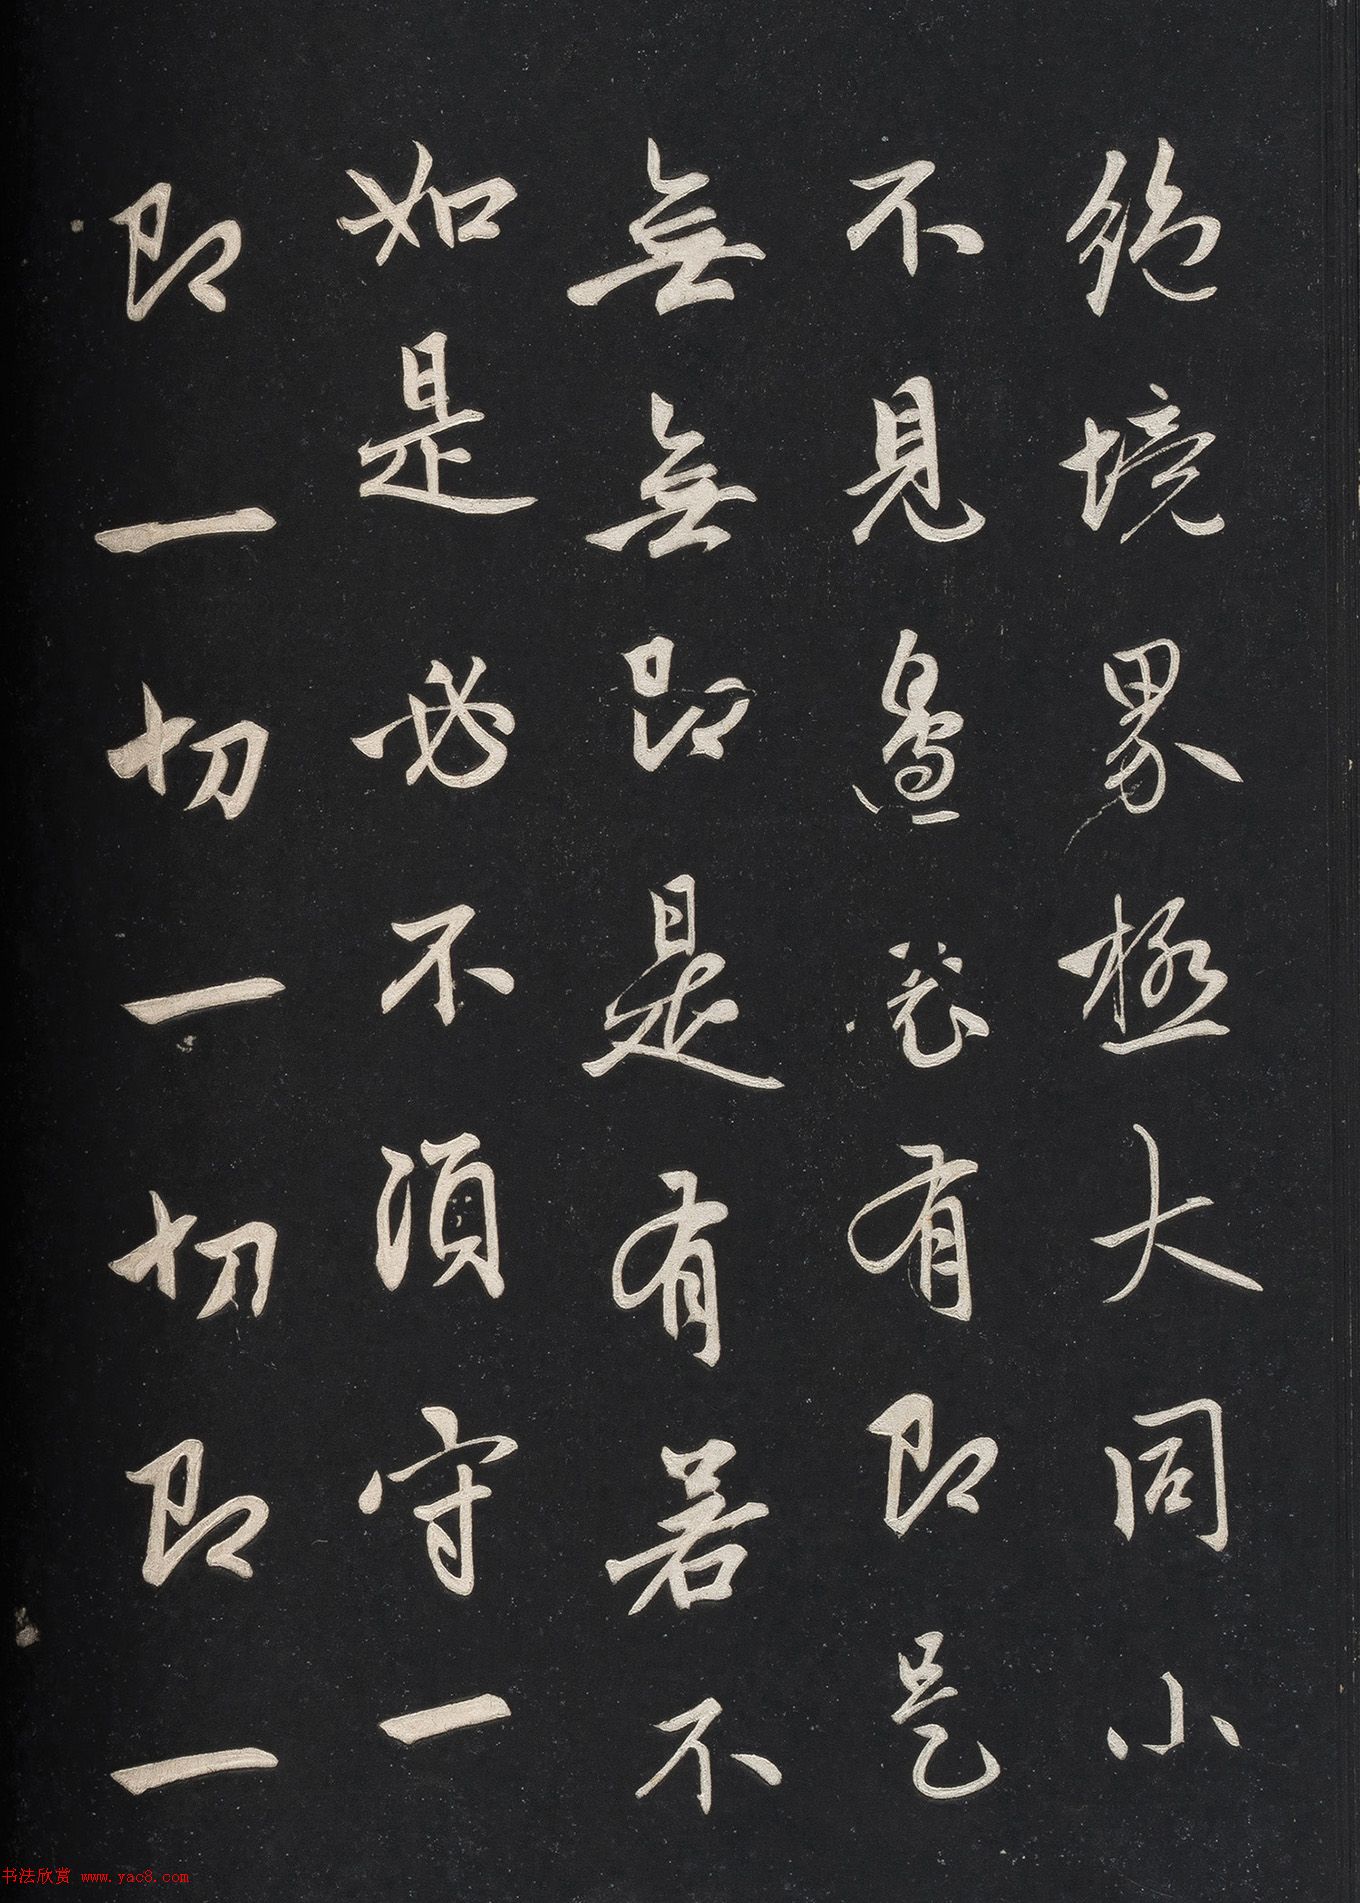 絶境界極大同小
不見邊表有即是
無無即是有若不
如是必不須守一
即一切一切即一
书法欣赏 www.yac8.com